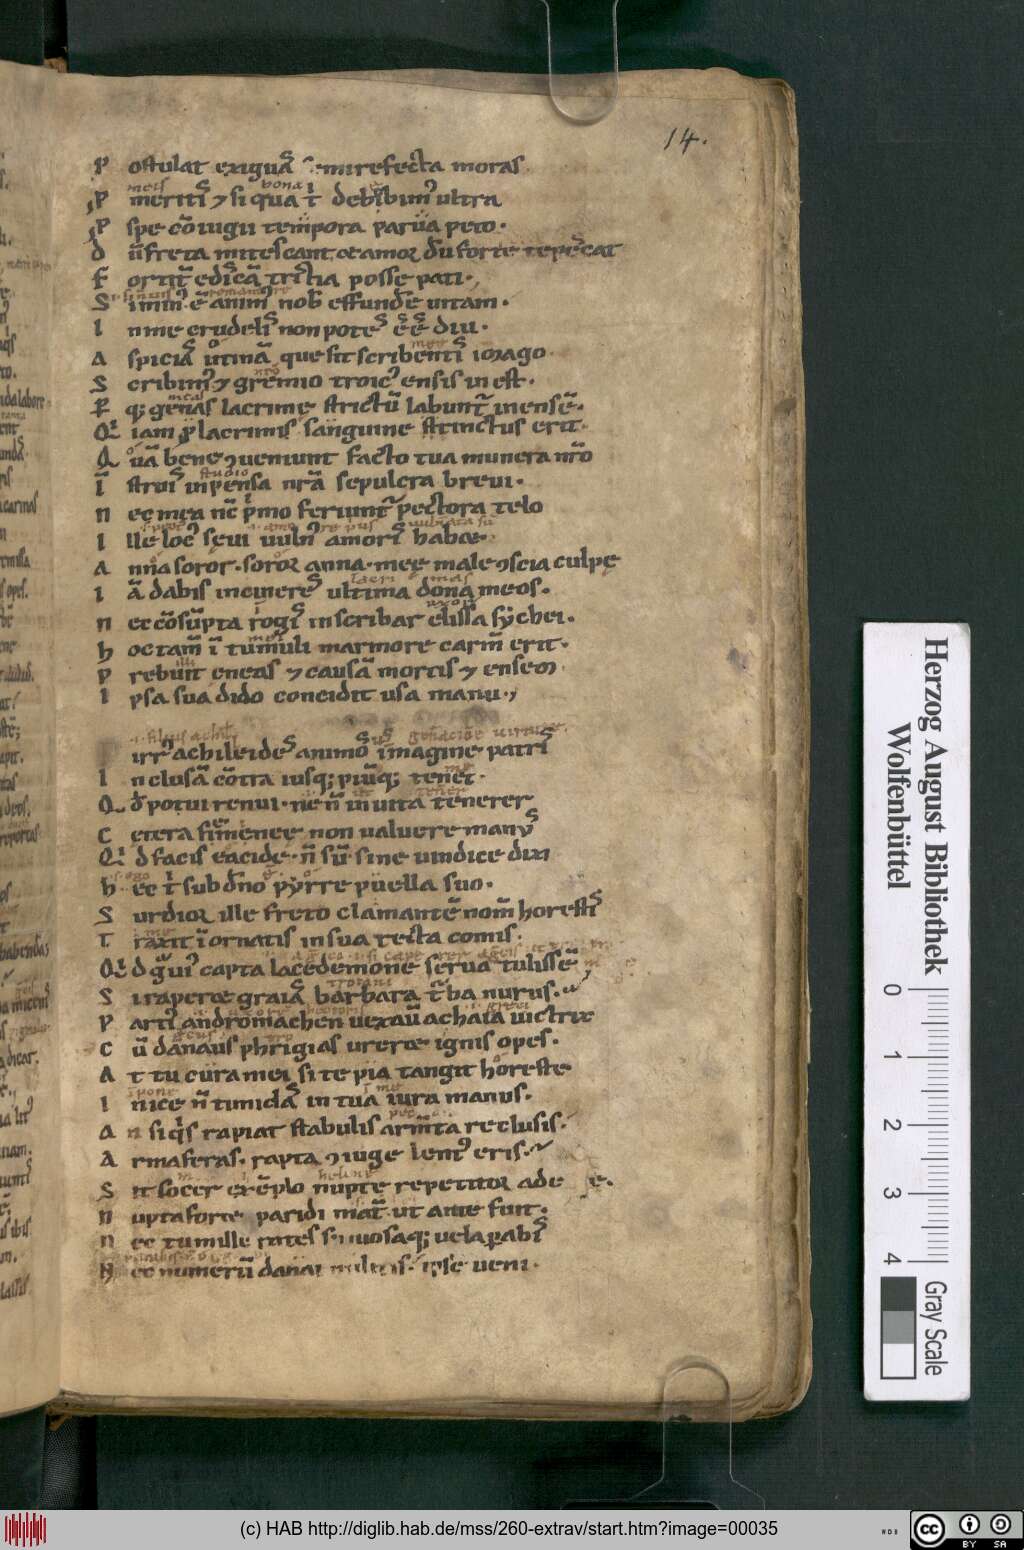 14.
P ostulat exiguā semirefecta moras
P meritis ⁊ si qua t̄ debēbim᷒ ultra
P spe cōiugii tempora parua peto.
d ū freta mitescant. et amor dū forte tepescat
F ortit̄ edisca tristia posse pati.
S i min᷒ ē anim᷒ nob̄ effundere uitam.
I n me crudelis non potes ēē diu.
A spicias utinā que sit scribentis imago
S cribim᷒ ⁊ gremio troic᷒ ensis inest.
P q; genas lacrime strictū labunt̄ in ensē.
Q iam p̄ lacrimis sanguine stinctus erit.
Q uā bene ꝯueniunt facto tua munera nr̄o
I struis inpensa nr̄a sepulcra breui.
N ec mea nc̄ p̄mo feriunt̄ pectora telo
I lle loc᷒ seui uuln᷒ amoris habet.
A nna soror. soror anna. mee male ꝯscia culpe
I ā dabis in cineres ultima dona meos.
N ec cōsūpta rogis inscribar elissa sychei.
h oc tam̄ ī tumuli marmore carm̄ erit.
P rebuit eneas ⁊ causā mortis ⁊ ensem
I psa sua dido concidit usa manu.
irr᷒ achileides animos᷒ imagine patris
I nclusā cōtra iusq; piūq; tenet.
Q d potui renui. ne n̄ inuita tenerer
C etera feminee non ualuere manus
Q d facis eacide. n̄ sū sine uindice dixi
h ec t̄ sub dn̄o pyrre puella suo.
S urdior ille freto clamantē nom̄ horestis
T raxit īornatis in sua tecta comis.
Q d grauius capta lacedemone serua tulissē
S i raperet graias barbara t̄ba nurus.
P arti᷒ andromachen uexaū achaia uictrix
C ū danaus phrigias ureret ignis opes.
A t tu cura mei si te pia tangit horeste
I nice n̄ timidas in tua iura manus.
A n siq̄s rapiat stabulis arm̄ta reclusis.
A rma feras. rapta ꝯiuge lent᷒ eris.
S it socer exēplo nupte repetitor ade e.
N upta foret paridi mat̄. ut ante fuit.
N ec tu mille rates sinuosaq; uela parabis
N ec numerū danai militis. ipse ueni.
Herzog August Bibliothek
Wolfenbüttel
0 1 2 3 4
Gray Scale
(c) HAB http://diglib.hab.de/mss/260-extrav/start.htm?image=00035
WDB
cc
BY SA